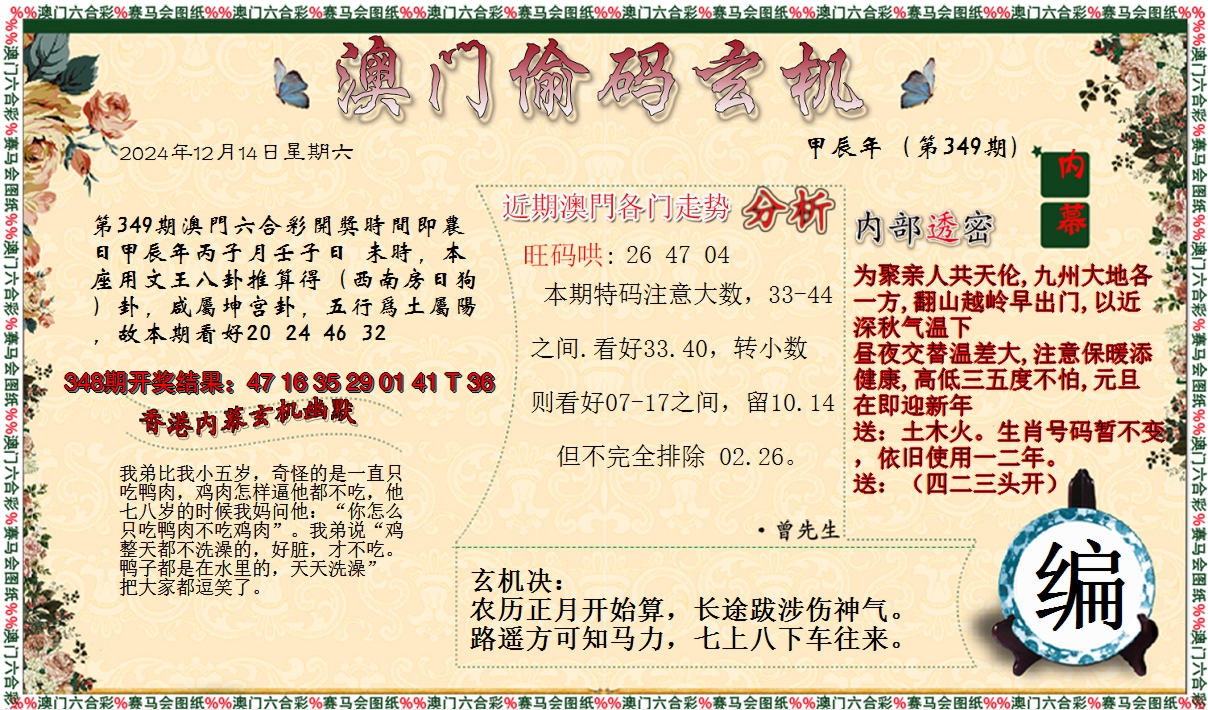 %%澳门六合彩%赛马会图纸%%澳门六合彩%赛马会图纸%%澳门六合彩%赛马会图纸%%澳门六合彩%赛马会图纸%%澳门六合彩%赛马会图纸%%澳门六合彩%赛马会图纸%%
澳门偷码玄机
2024年12月14日星期六
甲辰年（第349期）
内
幕
第349期澳門六合彩開獎時間即農
日甲辰年丙子月壬子日 未時，本
座用文王八卦推算得（西南房日狗
）卦，咸屬坤宫卦，五行爲土屬陽
，故本期看好20 24 46 32
348期开奖结果：47 16 35 29 01 41 T 36
香港内幕玄机幽默
我弟比我小五岁，奇怪的是一直只
吃鸭肉，鸡肉怎样逼他都不吃，他
七八岁的时候我妈问他：“你怎么
只吃鸭肉不吃鸡肉”。我弟说“鸡
整天都不洗澡的，好脏，才不吃。
鸭子都是在水里的，天天洗澡”
把大家都逗笑了。
近期澳門各门走势 分析
旺码哄: 26 47 04
本期特码注意大数，33-44
之间.看好33.40，转小数
则看好07-17之间，留10.14
但不完全排除 02.26。
·曾先生
内部透密
为聚亲人共天伦,九州大地各
一方,翻山越岭早出门,以近
深秋气温下
昼夜交替温差大,注意保暖添
健康,高低三五度不怕,元旦
在即迎新年
送：土木火。生肖号码暂不变
，依旧使用一二年。
送：（四二三头开）
玄机决：
农历正月开始算，长途跋涉伤神气。
路遥方可知马力，七上八下车往来。
编
%%澳门六合彩%赛马会图纸%%澳门六合彩%赛马会图纸%%澳门六合彩%赛马会图纸%%澳门六合彩%赛马会图纸%%澳门六合彩%赛马会图纸%%澳门六合彩%赛马会图纸%%